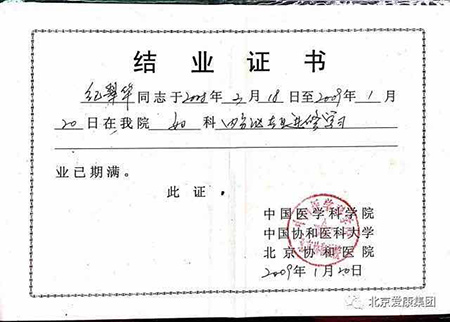 结业证书
同志于2008年2月18日至2009年1月
20日在我院妇科内分泌专业进修学习
业已期满。
此证。
中国医学科学院
中国协和医科大学
北京协和医院
2009年1月20日
北京爱康集团